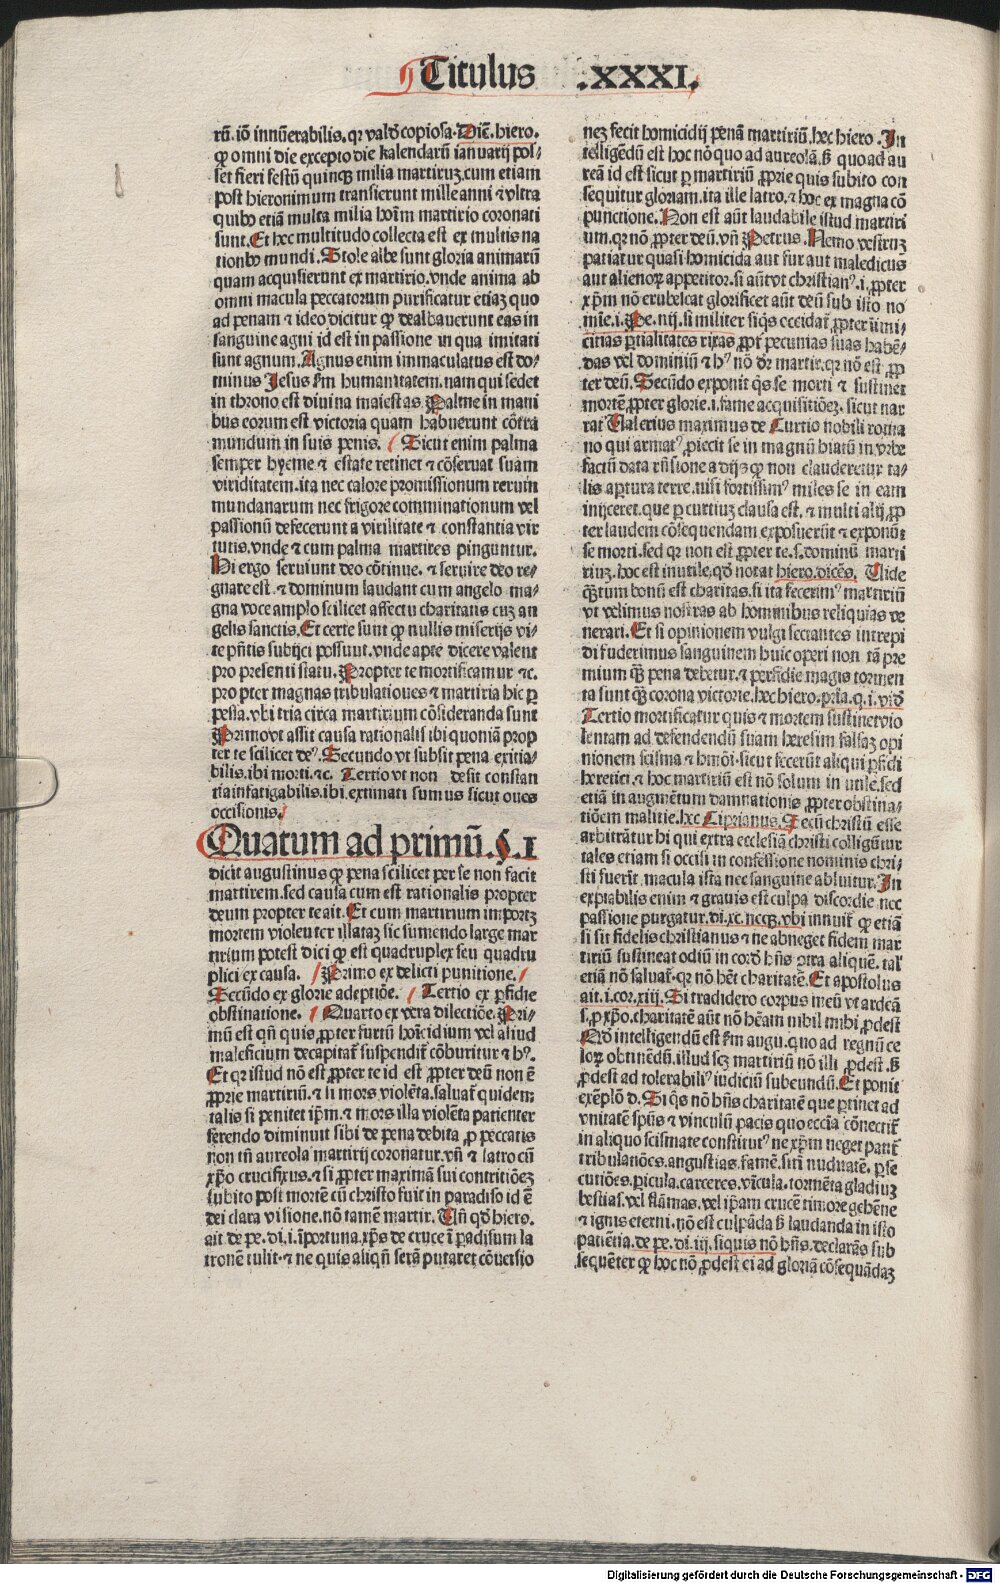 Titulus .XXXI.
rū. iō innūerabilis. qr valde copiosa. Dic̄. hiero.
qp omni die excepto die kalendarū ianuarij pos-
set fieri festū quinqz milia martiruz. cum etiam
post hieronimum transierunt mille anni & vltra
quibus etiā multa milia hoīm martirio coronati
sunt. Et hec multitudo collecta est ex multis na
tionibus mundi. Stole albe sunt gloria animarū
quam acquisierunt ex martirio. vnde anima ab
omni macula peccatorum purificatur etiaz quo
ad penam & ideo dicitur qp dealbauerunt eas in
sanguine agni id est in passione in qua imitati
sunt agnum. Agnus enim immaculatus est do-
minus Jesus sm humanitatem. nam qui sedet
in throno est diuina maiestas. Palme in mani
bus eorum est victoria quam habuerunt cōtra
mundum in suis penis. Sicut enim palma
semper hyeme & estate retinet & cōseruat suam
viriditatem. ita nec calore promissionum rerum
mundanarum nec frigore comminationum vel
passionū defecerunt a virilitate & constantia vir
tutis. vnde & cum palma martires pinguntur.
Hi ergo seruiunt deo cōtinue. & seruire deo re-
gnare est. & dominum laudant cum angelo ma-
gna voce amplo scilicet affectu charitatis cuz an
gelis sanctis. Et certe sunt qp nullis miserijs vi-
te pn̄tis subijci possunt. vnde apte dicere valent
pro presenti statu. Propter te mortificamur &c.
pro pter magnas tribulationes & martiria hic per
pessa. vbi tria circa martirium cōsideranda sunt
Primo vt assit causa rationalis ibi quoniā prop
ter te scilicet de9. Secundo vt subsit pena exitia-
bilis. ibi morti. &c. Tertio vt non desit constan
tia infatigabilis. ibi. extimati sumus sicut oues
occisionis.
Quatum ad primū. §. 1
dicit augustinus qp pena scilicet per se non facit
martirem. sed causa cum est rationalis propter
deum propter te ait. Et cum martirium importz
mortem violenter illataz sic sumendo large mar
tirium potest dici qp est quadruplex seu quadru
plici ex causa. Primo ex delicti punitione.
Secūdo ex glorie adeptiōe. Tertio ex perfidie
obstinatione. Quarto ex vera dilectiōe. Pri-
mū est qn̄ quis propter furtū hoīcidium vel aliud
maleficium decapitat suspendit cōburitur & h9.
Et qr istud nō est propter te id est propter deū non ē
proprie martiriū. & li mors violēta. saluat quidem
talis si penitet ipm. & mors illa violēta patienter
ferendo diminuit sibi de pena debita pro peccatis
non tn̄ aureola martirij coronatur. vn̄ & latro cū
xpo crucifixus. & si propter maximā sui contritiōez
subito post mortē cū christo fuit in paradiso id ē
dei clara visione. nō tamē martir. Un̄ qd hiero.
ait de pe. di. i. īportuna. xps de cruce ī padisum la
tronē tulit. & ne quis aliqn̄ serā putaret cōuersio
nez fecit homicidij penā martiriū. hec hiero. In
telligēdū est hoc nō quo ad aureolā. s quo ad au
reā id est sicut per martiriū proprie quis subito con
sequitur gloriam. ita ille latro. & hoc ex magna cō
punctione. Non est aūt laudabile istud martiri
um. qr nō propter deū. vn̄ Petrus. Nemo vestruz
patiatur quasi homicida aut fur aut maledicus
aut alienor appetitor. si aūt vt christian9. i. propter
xpm nō erubescat glorificet aūt deū sub isto no
mīe. i. Pe. iiij. si militer siqs occidat propter inimi
citias partialitates rixas. propt pecunias suas habē-
das vel dominiū & h9 nō dr martir. qr nō est pro
ter deū. Secūdo exponit qs se morti & sustinet
mortē propter glorie. i. fame acquisitiōez. sicut nar
rat Ualerius maximus de Curtio nobili roma
no qui armat9 piecit se in magnū hiatū in vrbe
factū data rn̄sione a dijs qp non clauderetur ta-
lis apertura terre. nisi fortissim9 miles se in eam
inijceret. que per curtiuz clausa est. & multi alij pro
ter laudem cōsequendam exposuerūt & exponūt
se morti. sed qr non est propter te. s. dominū marti
riuz. hoc est inutile. qd notat hiero. dicēs. Uide
quātum bonū est charitas. si ita fecerim9 martiriū
vt velimus nostras ab hominibus reliquias ve
nerari. Et si opinionem vulgi sectantes intrepi
di fuderimus sanguinem huic operi non tā pre
mium quā pena debetur. & perfidie magis tormen
ta sunt quā corona victorie. hec hiero. pria. q. i. vid
Tertio mortificatur quis & mortem sustinet vio
lentam ad defendendū suam heresim falsaz opi
nionem scisma & hmōi. sicut fecerūt aliqui perfidi
heretici. & hoc martiriū est nō solum in utile. sed
etiā in augmētum damnationis propter obstina-
tiōem malitie. hec Ciprianus. Secū christū esse
arbitrātur hi qui extra ecclesiā christi colligūtur
tales etiam si occisi in confessione nominis chri-
sti fuerīt. macula ista nec sanguine abluitur. In
expiabilis enim & grauis est culpa discordie nec
passione purgatur. di. xc. necqz. vbi innuit qp etiā
si sit fidelis christianus & ne abneget fidem mar
tiriū sustineat odiū in corde hn̄s contra aliquē. tal
etiā nō saluat. qr nō het charitatē. Et apostolus
ait. i. cor. xiij. Si tradidero corpus meū vt ardeā
s. pro xpo. charitatē aūt nō hēam nihil mihi prodest
Qd intelligendū est sm augu. quo ad regnū ce
lor obtinēdū. illud scz martiriū nō illi prodest. s
prodest ad tolerabili9 iudiciū subeundū. Et ponit
exēplū d. Si qs nō hn̄s charitatē que pertinet ad
vnitatē spūs & vinculū pacis quo eccīa cōnectit
in aliquo scismate constitut9 ne xpm neget patit
tribulatiōes. angustias. famē. sitī nuditatē. perse
cutiōes. pericula. carceres. vīcula. tormēta gladiuz
bestias. vel flāmas. vel ipam crucē timore gehēne
& ignis eterni. nō est culpāda s laudanda in isto
patiētia. de pe. di. iij. si quis nō hn̄s. declarās sub
sequēter qp hoc nō prodest ei ad gloriā cōsequādaz
Digitalisierung gefördert durch die Deutsche Forschungsgemeinschaft - DFG